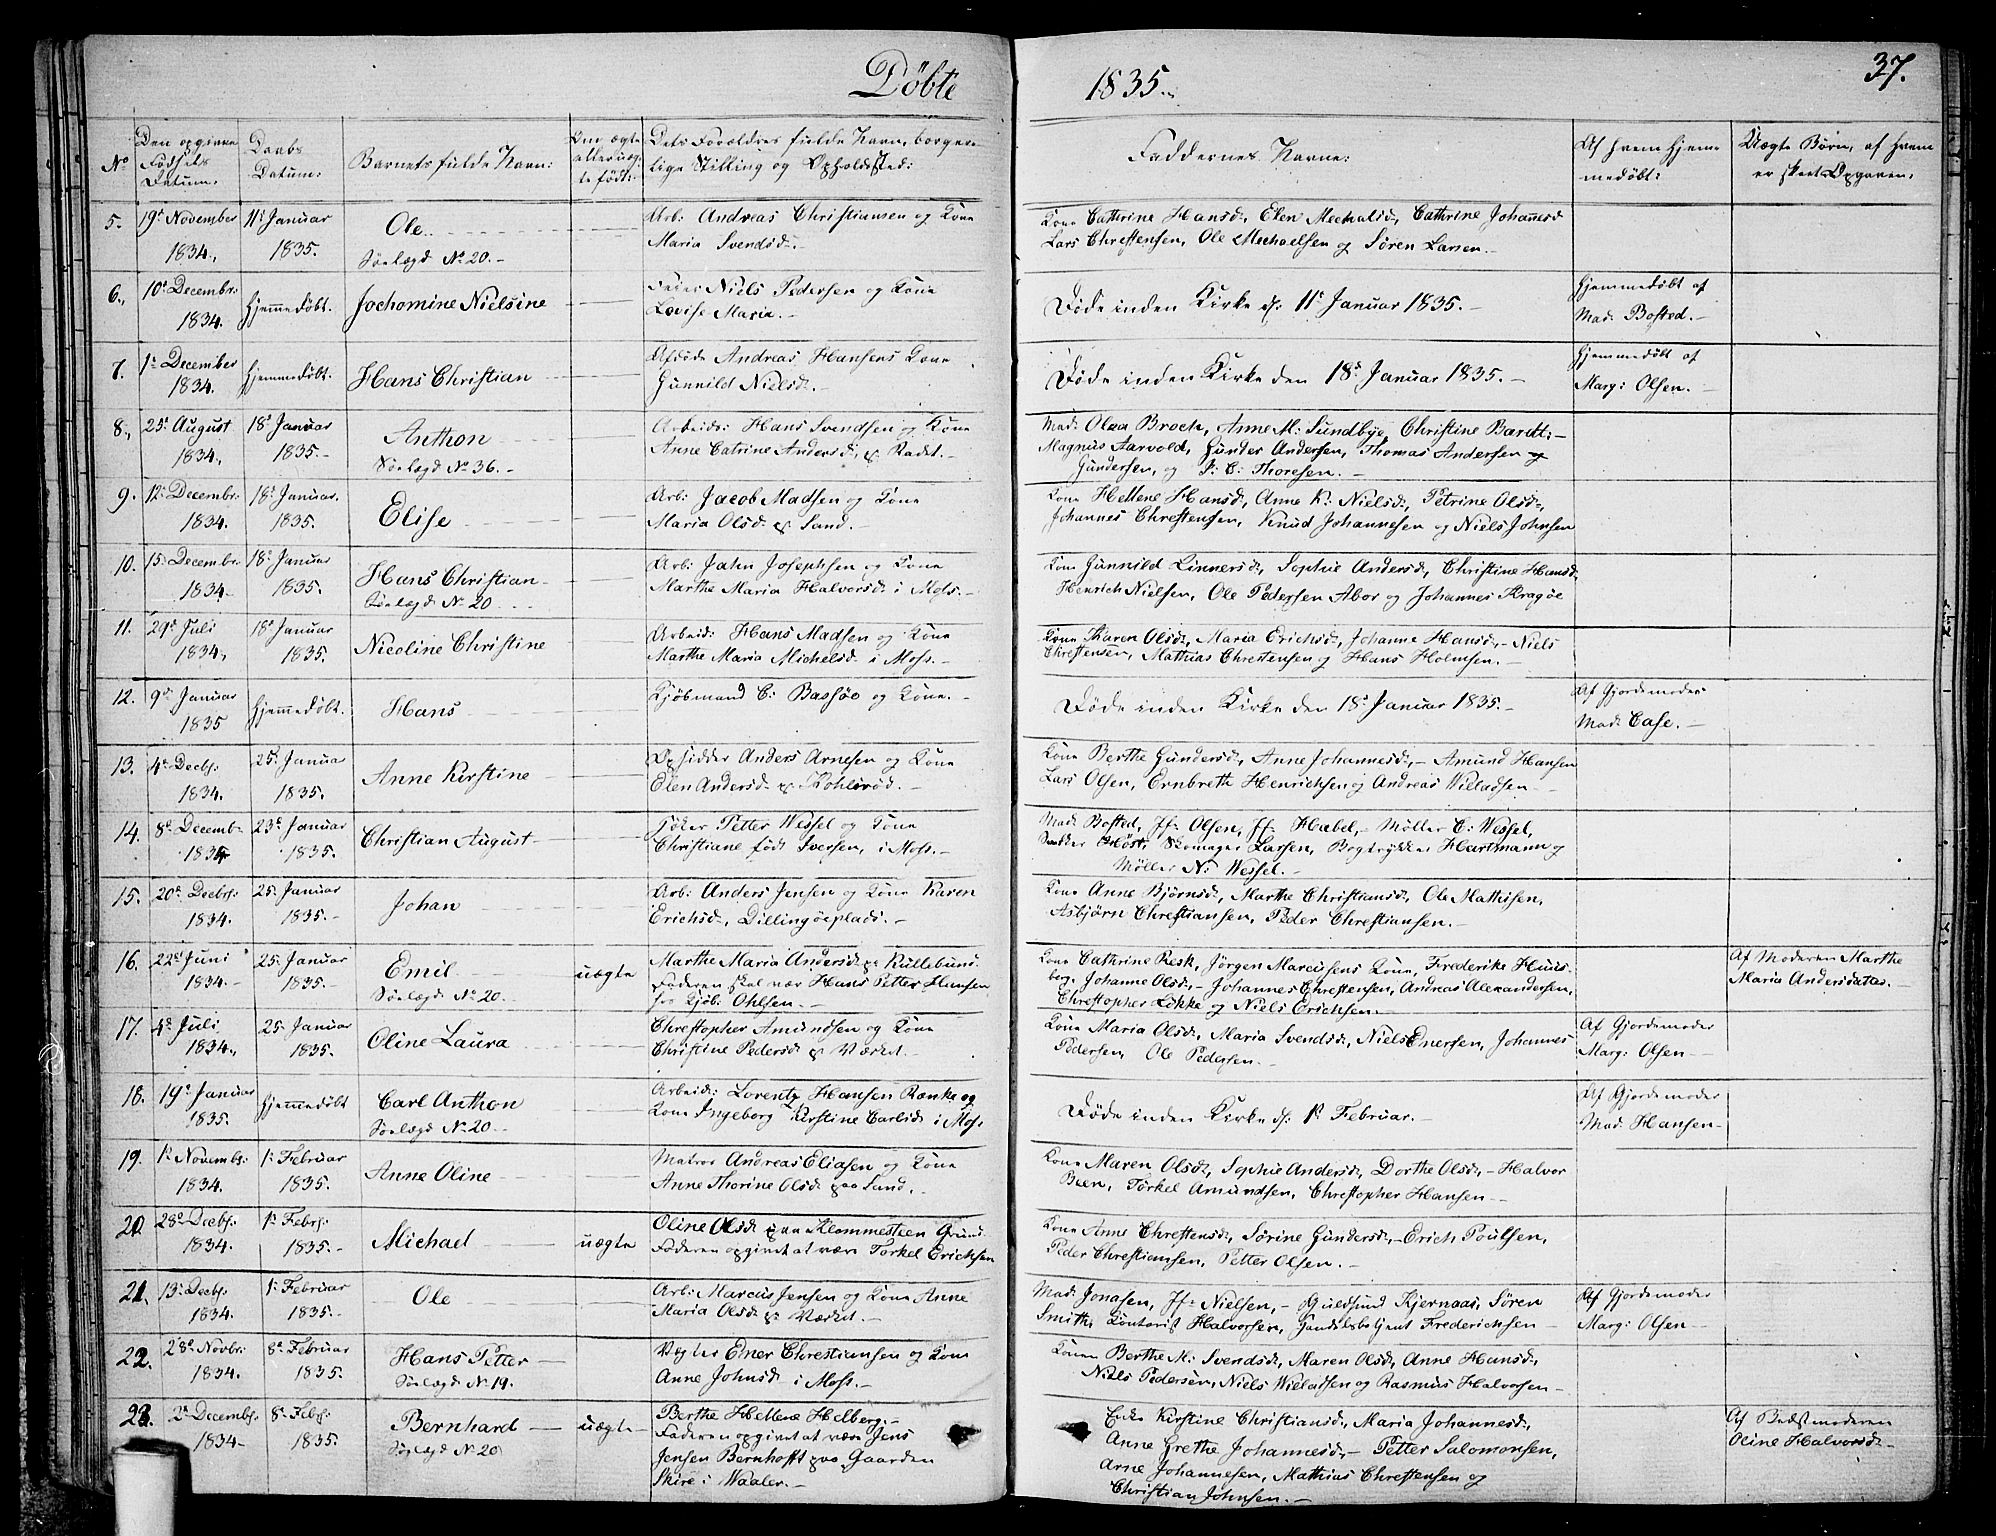 Døbte
1835.
37.
No
Den opgivne Fødsels Datum.
Daabs Datum:
Barnets fulde Navn:
Om ægte eller uægte født:
Dets Forældres fulde Navn, borgerlige Stilling og Opholdssted:
Faddernes Navne:
Af hvem hjemmedøbt:
Uægte Børn, af hvem er skeet Opgaven.
5. 19d November 1834. 11d Januar 1835. Ole.
Søelægd No 20.
Arb: Andreas Christiansen og Kone
Maria Svendsd.
Kone Cathrine Hansd, Elen Mechalsd, Cathrine Johannesd
Lars Chrestensen, Ole Mechaelsen og Søren Larsen.
6. 10d Decembr: 1834. hjemmedøbt. Jochomine Nielsine
Niels Pedersen og Kone
Lovise Maria.
Døde inden Kirke d: 11d Januar 1835.
hjemmedøbt af
Mad: Bosted.
7. 1d December 1834. hjemmedøbt. Hans Christian
Afdøde Andreas Hansens Kone
Gunnild Nielsd.
Døde inden Kirke den 18d Januar 1835.
hjemmedøbt af
Marg: Olsen.
8. 25d August 1834. 18d Januar 1835. Anthon
Søelægd No 36.
Arbeids: Hans Svendsen og Kone
Anne Catrine Andersd, p. Radet.
Mad: Olea Broch, Anne M: Sundbye, Christine Bardt:
Magnus Aarvold, Gunder Andersen, Thomas Andersen og
Gundersen, og P: C: Thoresen.
9. 12d Decembr: 1834. 18d Januar. 1835. Elise
Arb: Jacob Madsen og Kone
Maria Olsd p. Sand.
Kone Hellene Hansd, Anne K. Nielsd, Petrine Olsd,
Johannes Chrestensen, Knud Johannesen og Niels Johnsen
10. 15d Decembr: 1834. 18d Januar 1835. Hans Christian
Søelægd No 20
Arb: John Josephsen og Kone
Marthe Maria Halvorsd i Moss.
Kone Gunnild Linnersd, Sophie Andersd, Christine Hansd,
Henrich Nielsen, Ole Pedersen Abor og Johannes Kragøe
11. 29d Juli 1834. 18d Januar 1835. Nicoline Christine
Arbeid: Hans Madsen og Kone
Marthe Maria Michelsd i Moss.
Kone Karen Olsd, Maria Erichsd, Johanne Hansd, Niels
Chrestensen, Mathias Chrestensen og Hans Holmsen.
12. 9d Januar 1835 hjemmedøbt. Hans
Kjøbmand C: Bassøe og Kone.
Døde inden Kirke den 18d Januar 1835.
Af Gjordemoder
Mad: Case.
13. 4d Decbs: 1834. 25d Januar 1835. Anne Kirstine
Opsidder Anders Arnesen og Kone
Elen Andersd p. Kohlsrød.
Kone Berthe Gundersd, Anne Johannesd, Amund Hansen
Lars Olsen, Ernbreth Henrichsen og Andreas Wieladsen
14. 8d Decembr 1834 23d Januar 1835. Christian August
Petter Wessel og Kone
Christiane født Iversen, i Moss.
Mad: Bosted, Jf: Olsen, Jf: Hæbel, Møller C: Wessel,
Høst, Skomager Larsen, Bogtrykker Hartmann og
Møller N: Wessel.
15. 20d Decbs: 1834. 25. Januar 1835. Johan
Arb: Anders Jensen og Kone Karen
Erichsd, Dillingøeplads.
Kone Anne Bjørnsd, Marthe Christiansd, Ole Mathisen,
Asbjørn Chrestiansen, Peder Chrestiansen.
16. 22d Juni 1834. 25. Januar 1835. Emil
Søelægd No 20. uægte
Marthe Maria Andersd pa Kullebund.
Faderen skal vær Hans Petter Hansen
hos Kjøb: Ohlsen.
Kone Cathrine Resk, Jørgen Marcusens Kone, Frederike Huusberg,
Johanne Olsd, Johannes Chrestensen, Andreas Alexandersen,
Chrestopher Løkke og Niels Erichsen.
Af Moderen Marthe
Maria Andersdatter.
17. 4d Juli 1834. 25. Januar 1835. Oline Laura
Chrestopher Amundsen og Kone
Christine Pedersd p. Værket.
Kone Maria Olsd, Maria Svendsd, Niels Enersen, Johannes
Pedersen, Ole Pedersen.
Af Gjordemoder
Marg: Olsen
18. 19d Januar 1835. hjemmedøbt Carl Anthon
Søelægd No 20.
Arbeid: Lorentz Hansen Rænke og
Kone Ingeborg Kirstine Carlsd i Moss.
Døde inden Kirke d: 1d Februar.
Af Gjordemoder
Mad: Hansen
19. 1d Novembs: 1834. 1d Februar 1835. Anne Oline
Matros Andreas Eliasen og Kone
Anne Thorine Olsd paa Sand.
Kone Maren Olsd, Sophie Andersd, Dorthe Olsd, Halvor
Bien, Torkel Amundsen, Chrestopher Hansen
20 28d Decbs: 1834. 1d Febrs: 1835. Michael uægte
Oline Olsd paa Klommesteen Grund
Faderen opgivet at være Torkel Erichsen
Kone Anne Chrestensd, Sørine Gundersd, Erich Poulsen,
Peder Chrestiansen, Petter Olsen.
21. 13d Decbs 1834. 1d Februar 1835. Ole
Arb: Marcus Jensen og Kone Anne
Maria Olsd p. Værket.
Mad: Jonasen, Jf: Nielsen, Guldsmd Kjernaas, Søren
Smith, Contorist Halvorsen, Handelsbetjent Frederichsen
Af Gjordemoder
Marg: Olsen
22. 28d Novbr: 1834. 8d Februar 1835. Hans Petter
Søelægd No 19.
Vægter Ener Chrestiansen og Kone
Anne Johnsd i Moss.
Konen Berthe M: Svendsd, Maren Olsd, Anne Hansd,
Niels Pedersen, Niels Wieladsen og Rasmus Halvorsen
23. 2d Decembs: 1834 8d Febs: 1835. Bernhard
Søelægd No 20 uægte
Berthe Hellene Helberg.
Faderen opgivet at være Jens
Jensen Bernhofft paa Gaarden
Skire i Waaler.
Enke Kirstine Christiansd, Maria Johannesd,
Anne Grethe Johannesd, Petter Salomonsen,
Arne Johannesen, Mathias Chrestensen og
Christian Johnsen.
Af Bedstemoderen
Oline Halvorsd